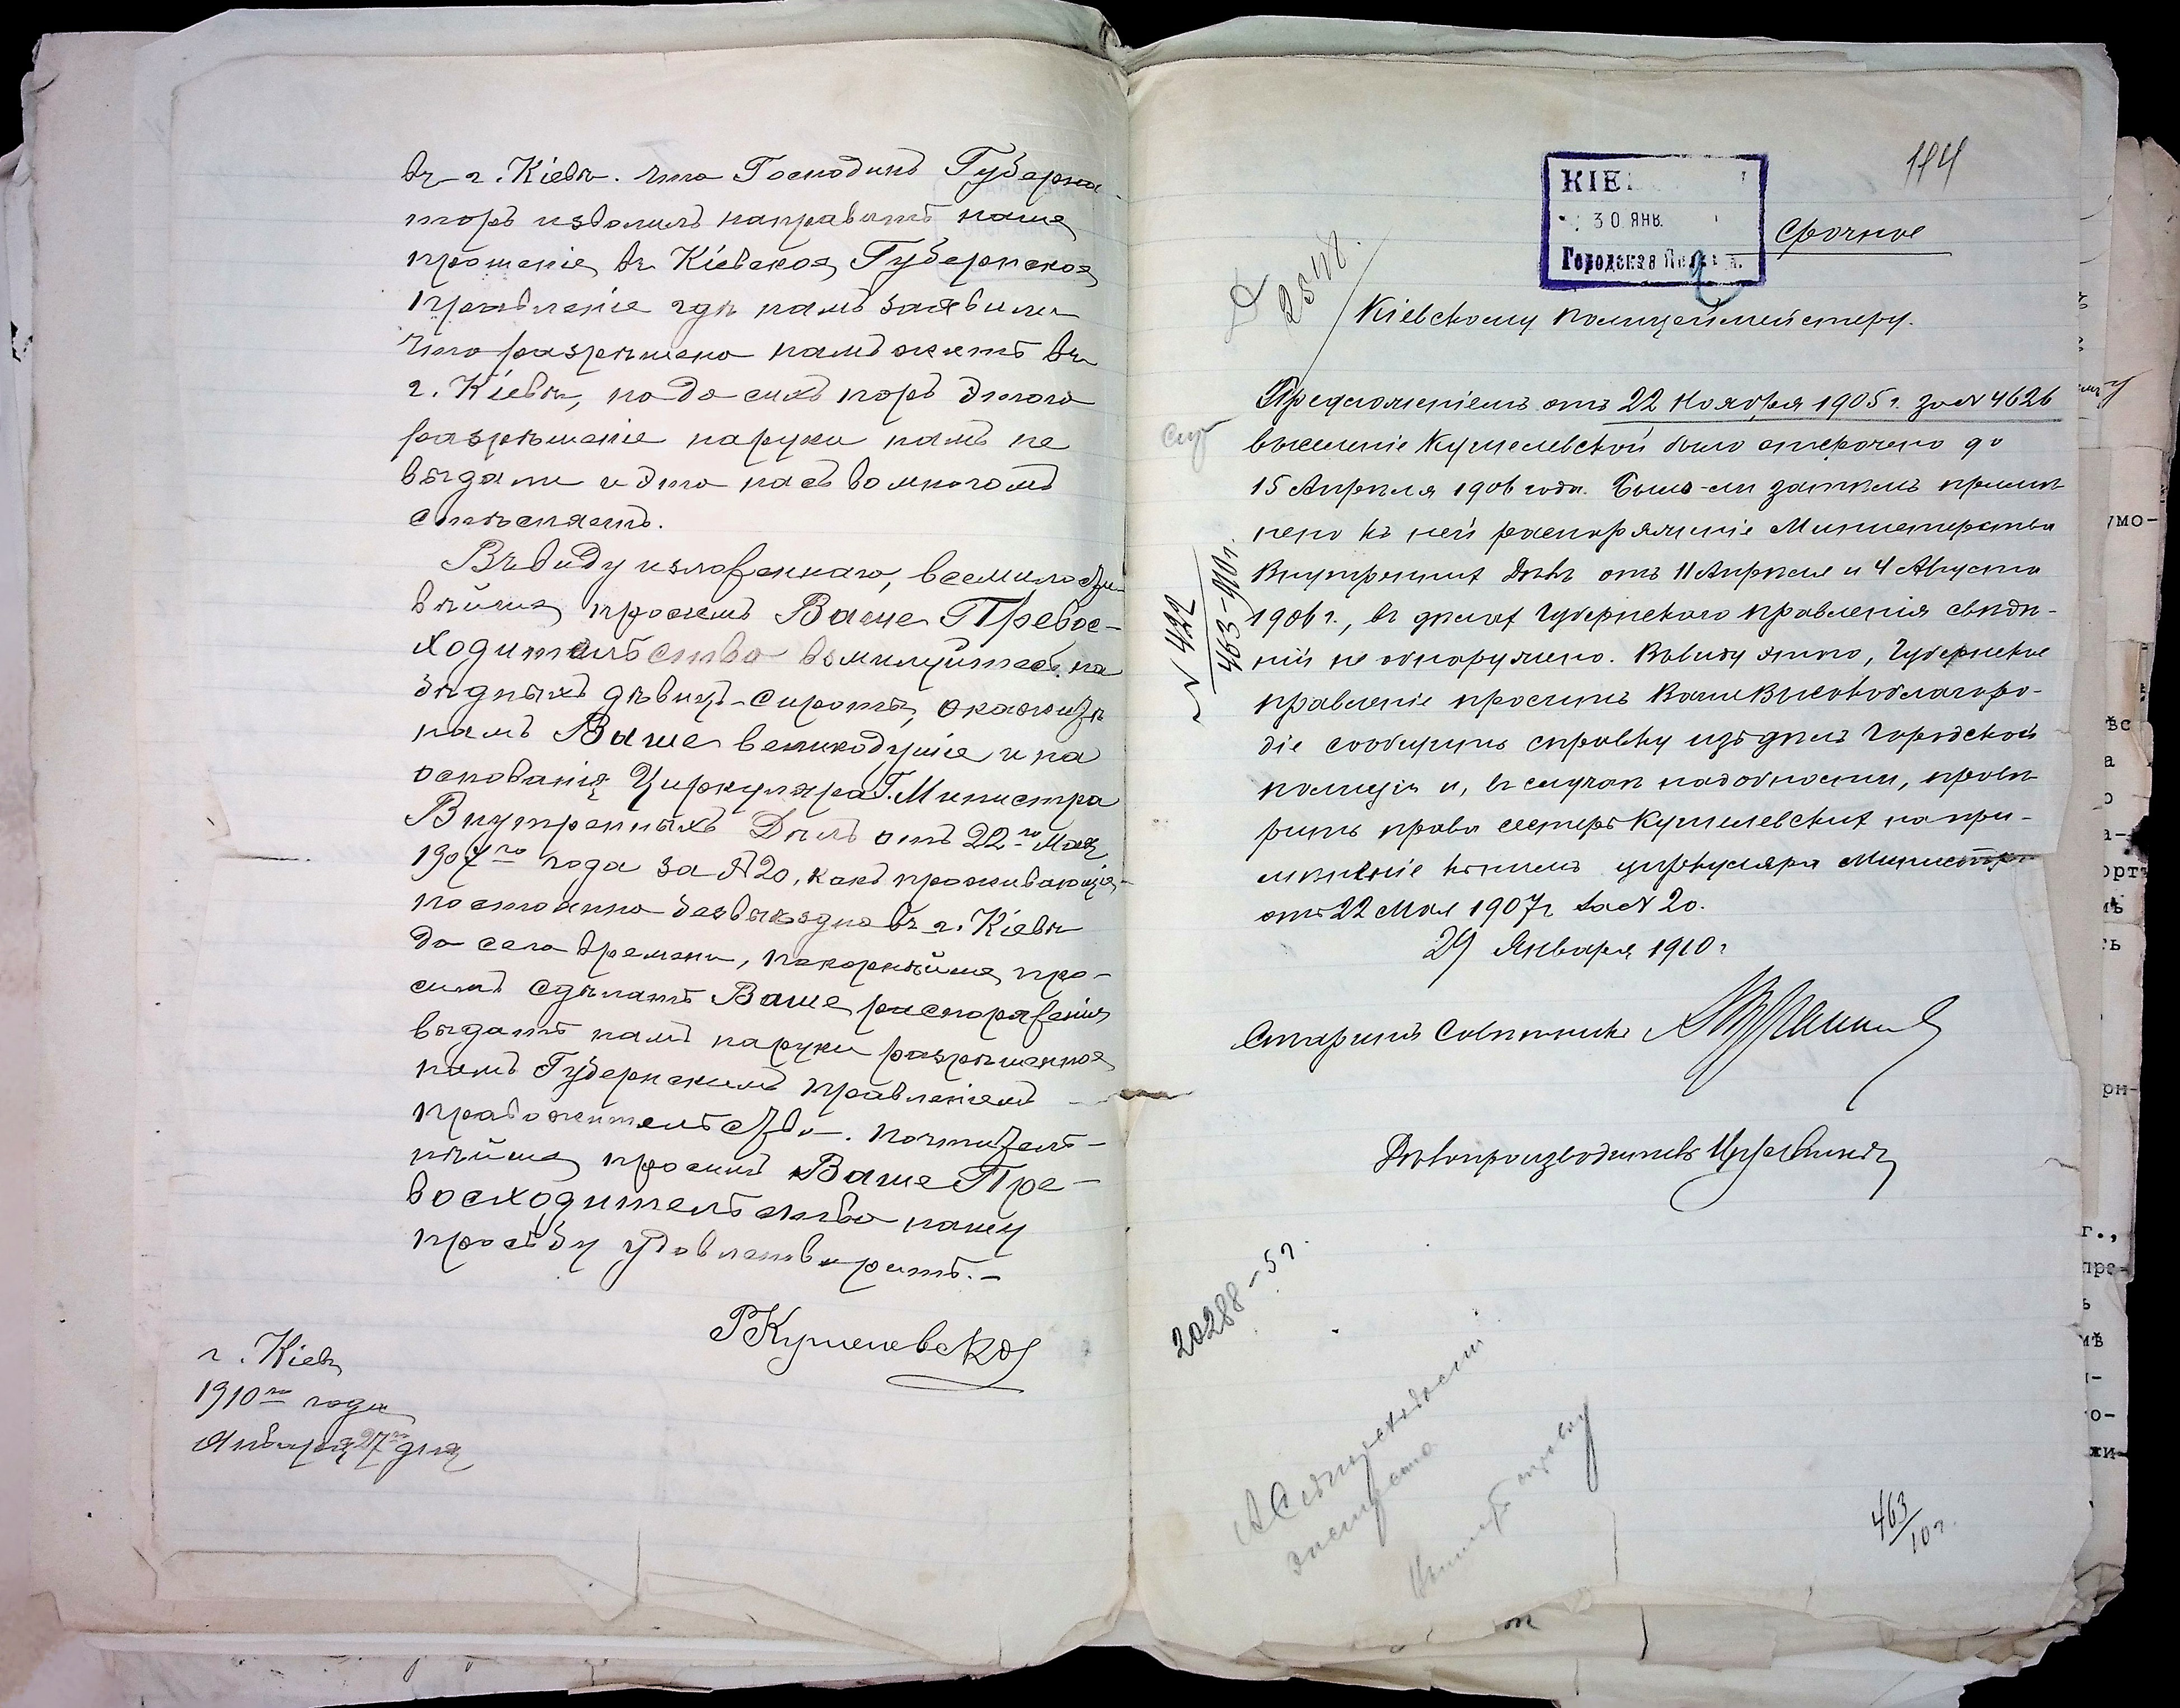 въ г. Кіевѣ. что Господинъ Губерна-
торъ изволилъ направить наше
прошеніе въ Кіевское Губернское
Правленіе гдѣ намъ заявили
что разрѣшено намъ жить въ
г. Кіевѣ, но до сихъ поръ этого
разрѣшенія наруки намъ не
выдали и это насъ во многомъ
стѣсняетъ.
Въ виду изложеннаго, всемилости-
вѣйше просимъ Ваше Превос-
ходительство вомилуйтесь на
бѣдныхъ дѣвицъ-сиротъ, окажите
намъ Ваше великодушіе и на
основаніи Циркуляра Г. Министра
Внутренныхъ Дѣлъ отъ 22го Мая
1907го года за № 20, какъ проживающія
постоянно безвыѣздно въ г. Кіевѣ
до сего времени, покорнѣйше про-
симъ сдѣлать Ваше распоряженія
выдать намъ наруки разрѣшенное
намъ Губернскимъ Правленіемъ
правожительство. Почтитель-
нѣйше просимъ Ваше Пре-
восходительство нашу
просьбу удовлетворить.-
РКушелевская
г. Кіевъ
1910го года
Января 27го дня
194
КІЕ
30 ЯНВ.
Городская
Срочное
2548.
Кіевскому Полицеймейстеру.
Предложеніемъ отъ 22 Ноября 1905 г. за № 4626
выселеніе Кушелевской было отсрочено до
15 Апрѣля 1906 года. Было-ли затѣмъ примѣ
нено къ ней распоряженіе Министерства
Внутреннихъ Дѣлъ отъ 11 Апрѣля и 4 Августа
1906 г., въ дѣлахъ Губернскаго Правленія свѣдѣ-
ній не обнаружено. Ввиду этого, Губернское
Правленіе проситъ Ваше Высокоблагоро-
діе сообщить справку изъ дѣлъ Городской
полиціи и, въ случаѣ надобности, провѣ
рить права сестеръ Кушелевскихъ на при-
мѣненіе къ нимъ циркуляра Министра
отъ 22 Мая 1907 г. за № 20.
29 Января 1910 г
Старшій Совѣтникъ
Дѣлопроизводитель
№ 422
463-910 г.
20288-5 г.
463/10 г.